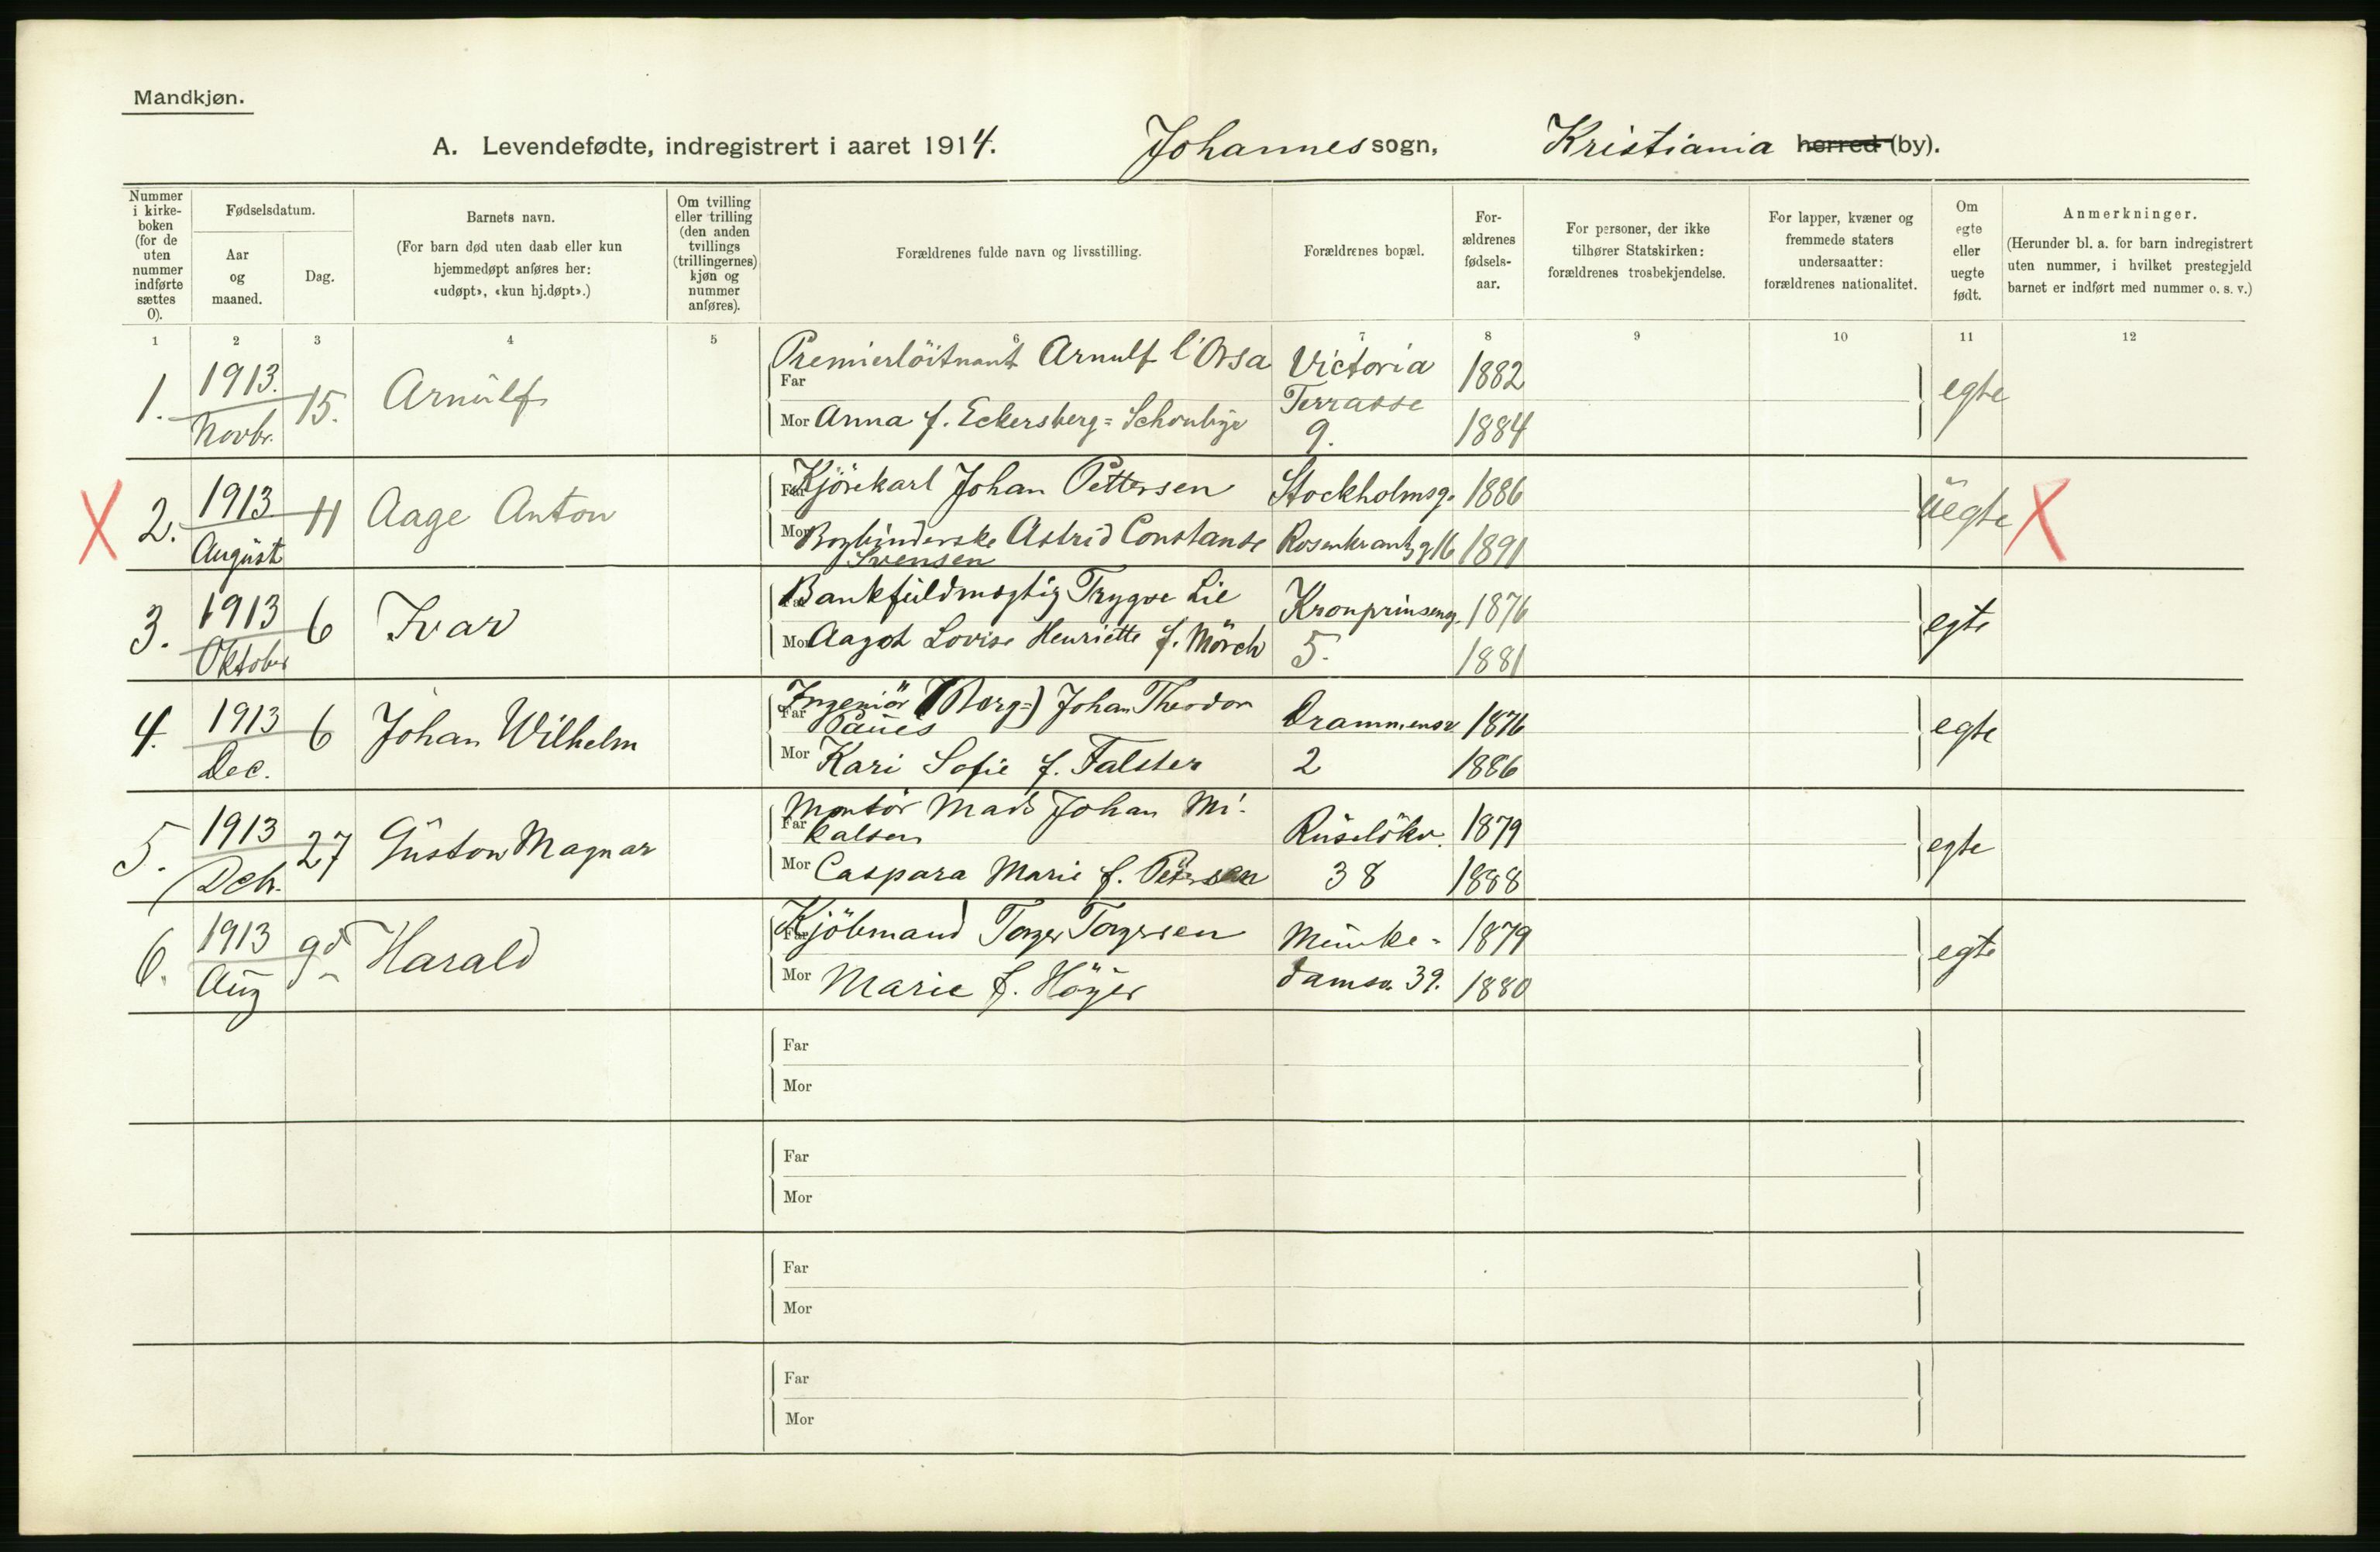 Mandkjøn.
A. Levendefødte, indregistrert i aaret 1914. Johannes sogn, Kristiania herred (by).
Nummer i kirke-boken (for de uten nummer indførte sættes 0).
Fødselsdatum.
Aar og maaned.
Dag.
Barnets navn.
(For barn død uten daab eller kun hjemmedøpt anføres her: «udøpt», «kun hj.døpt».)
Om tvilling eller trilling (den anden tvillings (trillingernes) kjøn og nummer anføres).
Forældrenes fulde navn og livsstilling.
Forældrenes bopæl.
For-ældrenes fødsels-aar.
For personer, der ikke tilhører Statskirken: forældrenes trosbekjendelse.
For lapper, kvæner og fremmede staters undersaatter: forældrenes nationalitet.
Om egte eller uegte født.
Anmerkninger.
(Herunder bl. a. for barn indregistrert uten nummer, i hvilket prestegjeld barnet er indført med nummer o. s. v.)
1 2 3 4 5 6 7 8 9 10 11 12
1. 1913. Novbr. 15. Arnulf
Far Premierlöitnant Arnulf l'Orsa Victoria Terrasse 1882 egte
Mor Anna f. Eckersberg= 9. 1884
X 2. 1913 August 11 Aage Anton
Far Kjörekarl Johan Pettersen Stockholmsg. 1886 uegte X
Mor Bogbinderske Astrid Constanse Svensen Rosenkrantzg 16 1891
3. 1913 Oktober 6 Ivar
Far Bankfuldmægtig Trygve Lie Kronprinseng. 1876 egte
Mor Aagot Lovise Henriette f. Mörch 5. 1881
4. 1913 Dec. 6 Johan Wilhelm
Far Ingeniör (Borg=) Johan Theodor Paües Drammensv 1876 egte
Mor Kari Sofie f. Falster 2 1886
5. 1913 Dcb. 27 Gustav Magnar
Far Montör Mads Johan Mi-kalsen Ruselökv. 1879 egte
Mor Caspara Marie f. Petersen 38 1888
6. 1913 Aug 9d Harald
Far Kjöbmand Torger Torgersen Munke- 1879 egte
Mor Marie f. Höyer damsv. 39. 1880
Far
Mor
Far
Mor
Far
Mor
Far
Mor